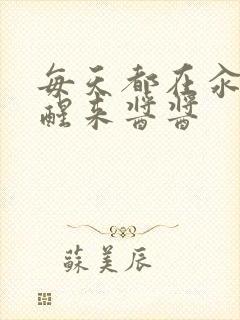 每天都在汆
醒来酱酱
蘇美辰